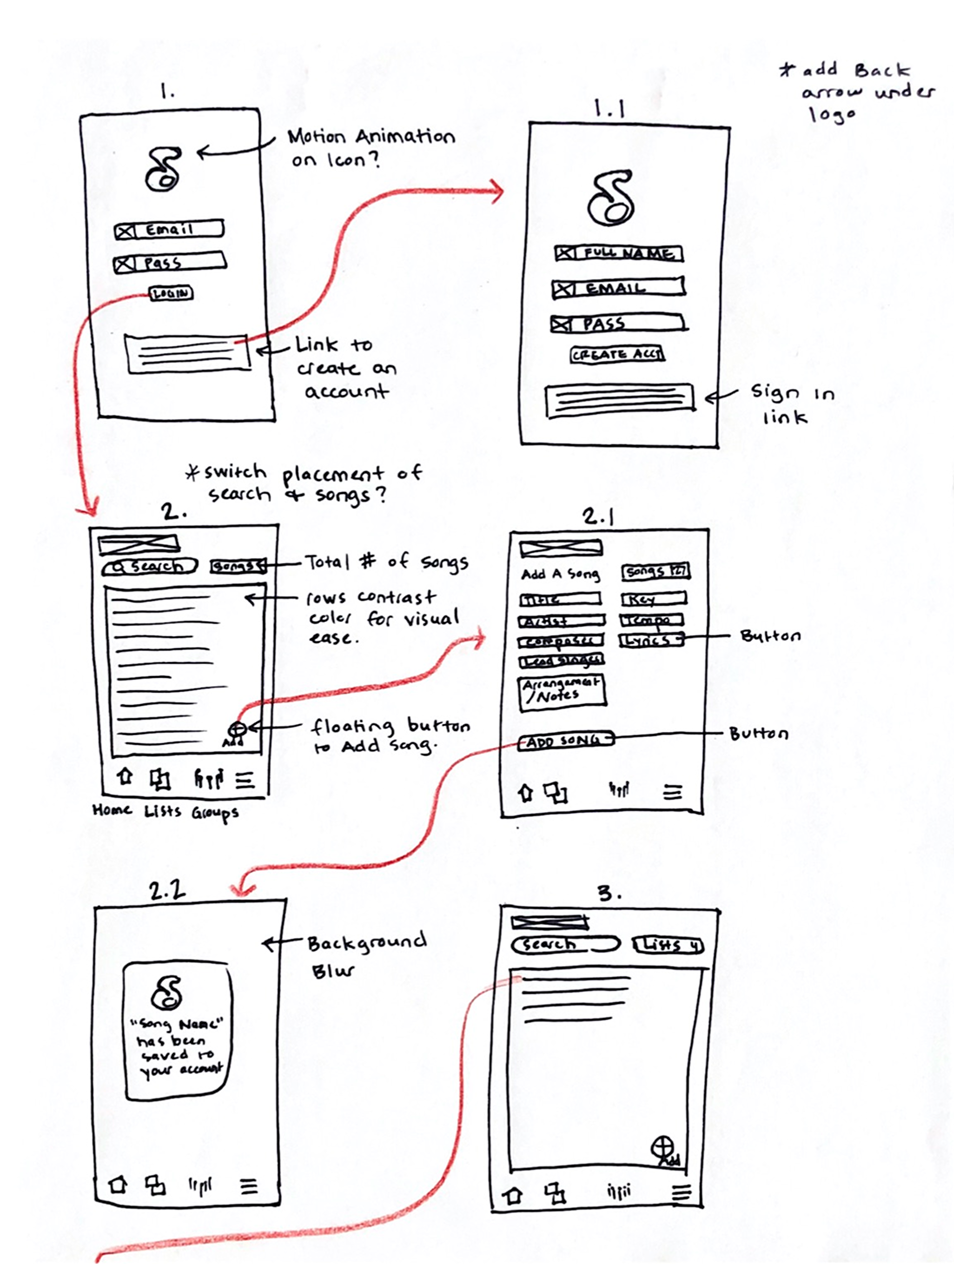 * add Back
arrow under
logo
1.
Motion Animation
on Icon?
Email
Pass
LOGIN
Link to
create an
account
1.1
FULL NAME
EMAIL
PASS
CREATE ACCT
Sign In
link
*switch placement of
search & songs?
2.
Search
Songs
Total # of songs
rows contrast
color for visual
ease.
floating button
to Add song.
Add
Home Lists Groups
2.1
Add A Song
Songs
Title
Key
Artist
Tempo
Composer
Lyrics
Button
Lead Singer
Arrangement
/Notes
ADD SONG
Button
2.2
Background
Blur
"Song Name"
has been
saved to
your account
3.
Search
Lists 4
Add